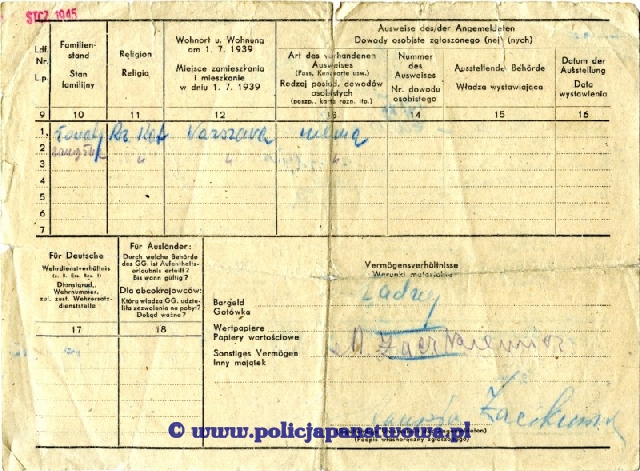 STCZ. 1945
Ausweise des/der Angemeldeten
Dowody osobiste zgłoszonego (nej) (nych)
Lfd. Nr.
L.p.
Familien-
stand
Stan
familijny
Religion
Religia
Wohnort u. Wohnung
am 1. 7. 1939
Miejsce zamieszkania
i mieszkanie
w dniu 1. 7. 1939
Art des vorhandenen
Ausweises
(Pass, Kennkarte usw.)
Rodzaj posiad. dowodów
osobistych
(paszp., karta rozn. itp.)
Nummer
des
Ausweises
Nr. dowodu
osobistego
Ausstellende Behörde
Władza wystawiająca
Datum der
Ausstellung
Data
wystawienia
9 10 11 12 13 14 15 16
1. Rz. Kat Warszawa niema
2. zamężna " " "
3
4
5
6
7
Für Deutsche
Wehrdienstverhältnis
Dienstgrad,
Wehrnummer,
zul. zust. Wehrersatz-
dienststelle
17
Für Ausländer:
Durch welche Behörde
des GG. ist Aufenthalts-
erlaubnis erteilt?
Bis wann gültig?
Dla obcokrajowców:
Która władza GG. udzie-
liła zezwolenia na pobyt?
Dokąd ważne?
18
Vermögensverhältnisse
Warunki materialne
Bargeld
Gotówka
Wertpapiere
Papiery wartościowe
Sonstiges Vermögen
Inny majątek
(Podpis własnoręczny zgłoszonego)
© www.policjapanstwowa.pl